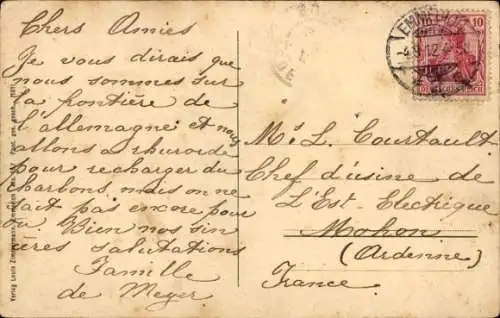 Chers Amies
Je vous dirais que
nous sommes sur
la frontière de
l'allemagne et nous
allons a rhurorde
pour recharger du
charbons, mais on ne
fait pas encore pour
Bien nos sin
ceres salutations
Famille
de Meyer
EMMER
10
Ms L. Courtault
Chef d'usine de
L'Est-Electrique
Mohon
(Ardenne)
France
Verlag Louis Zimmermann